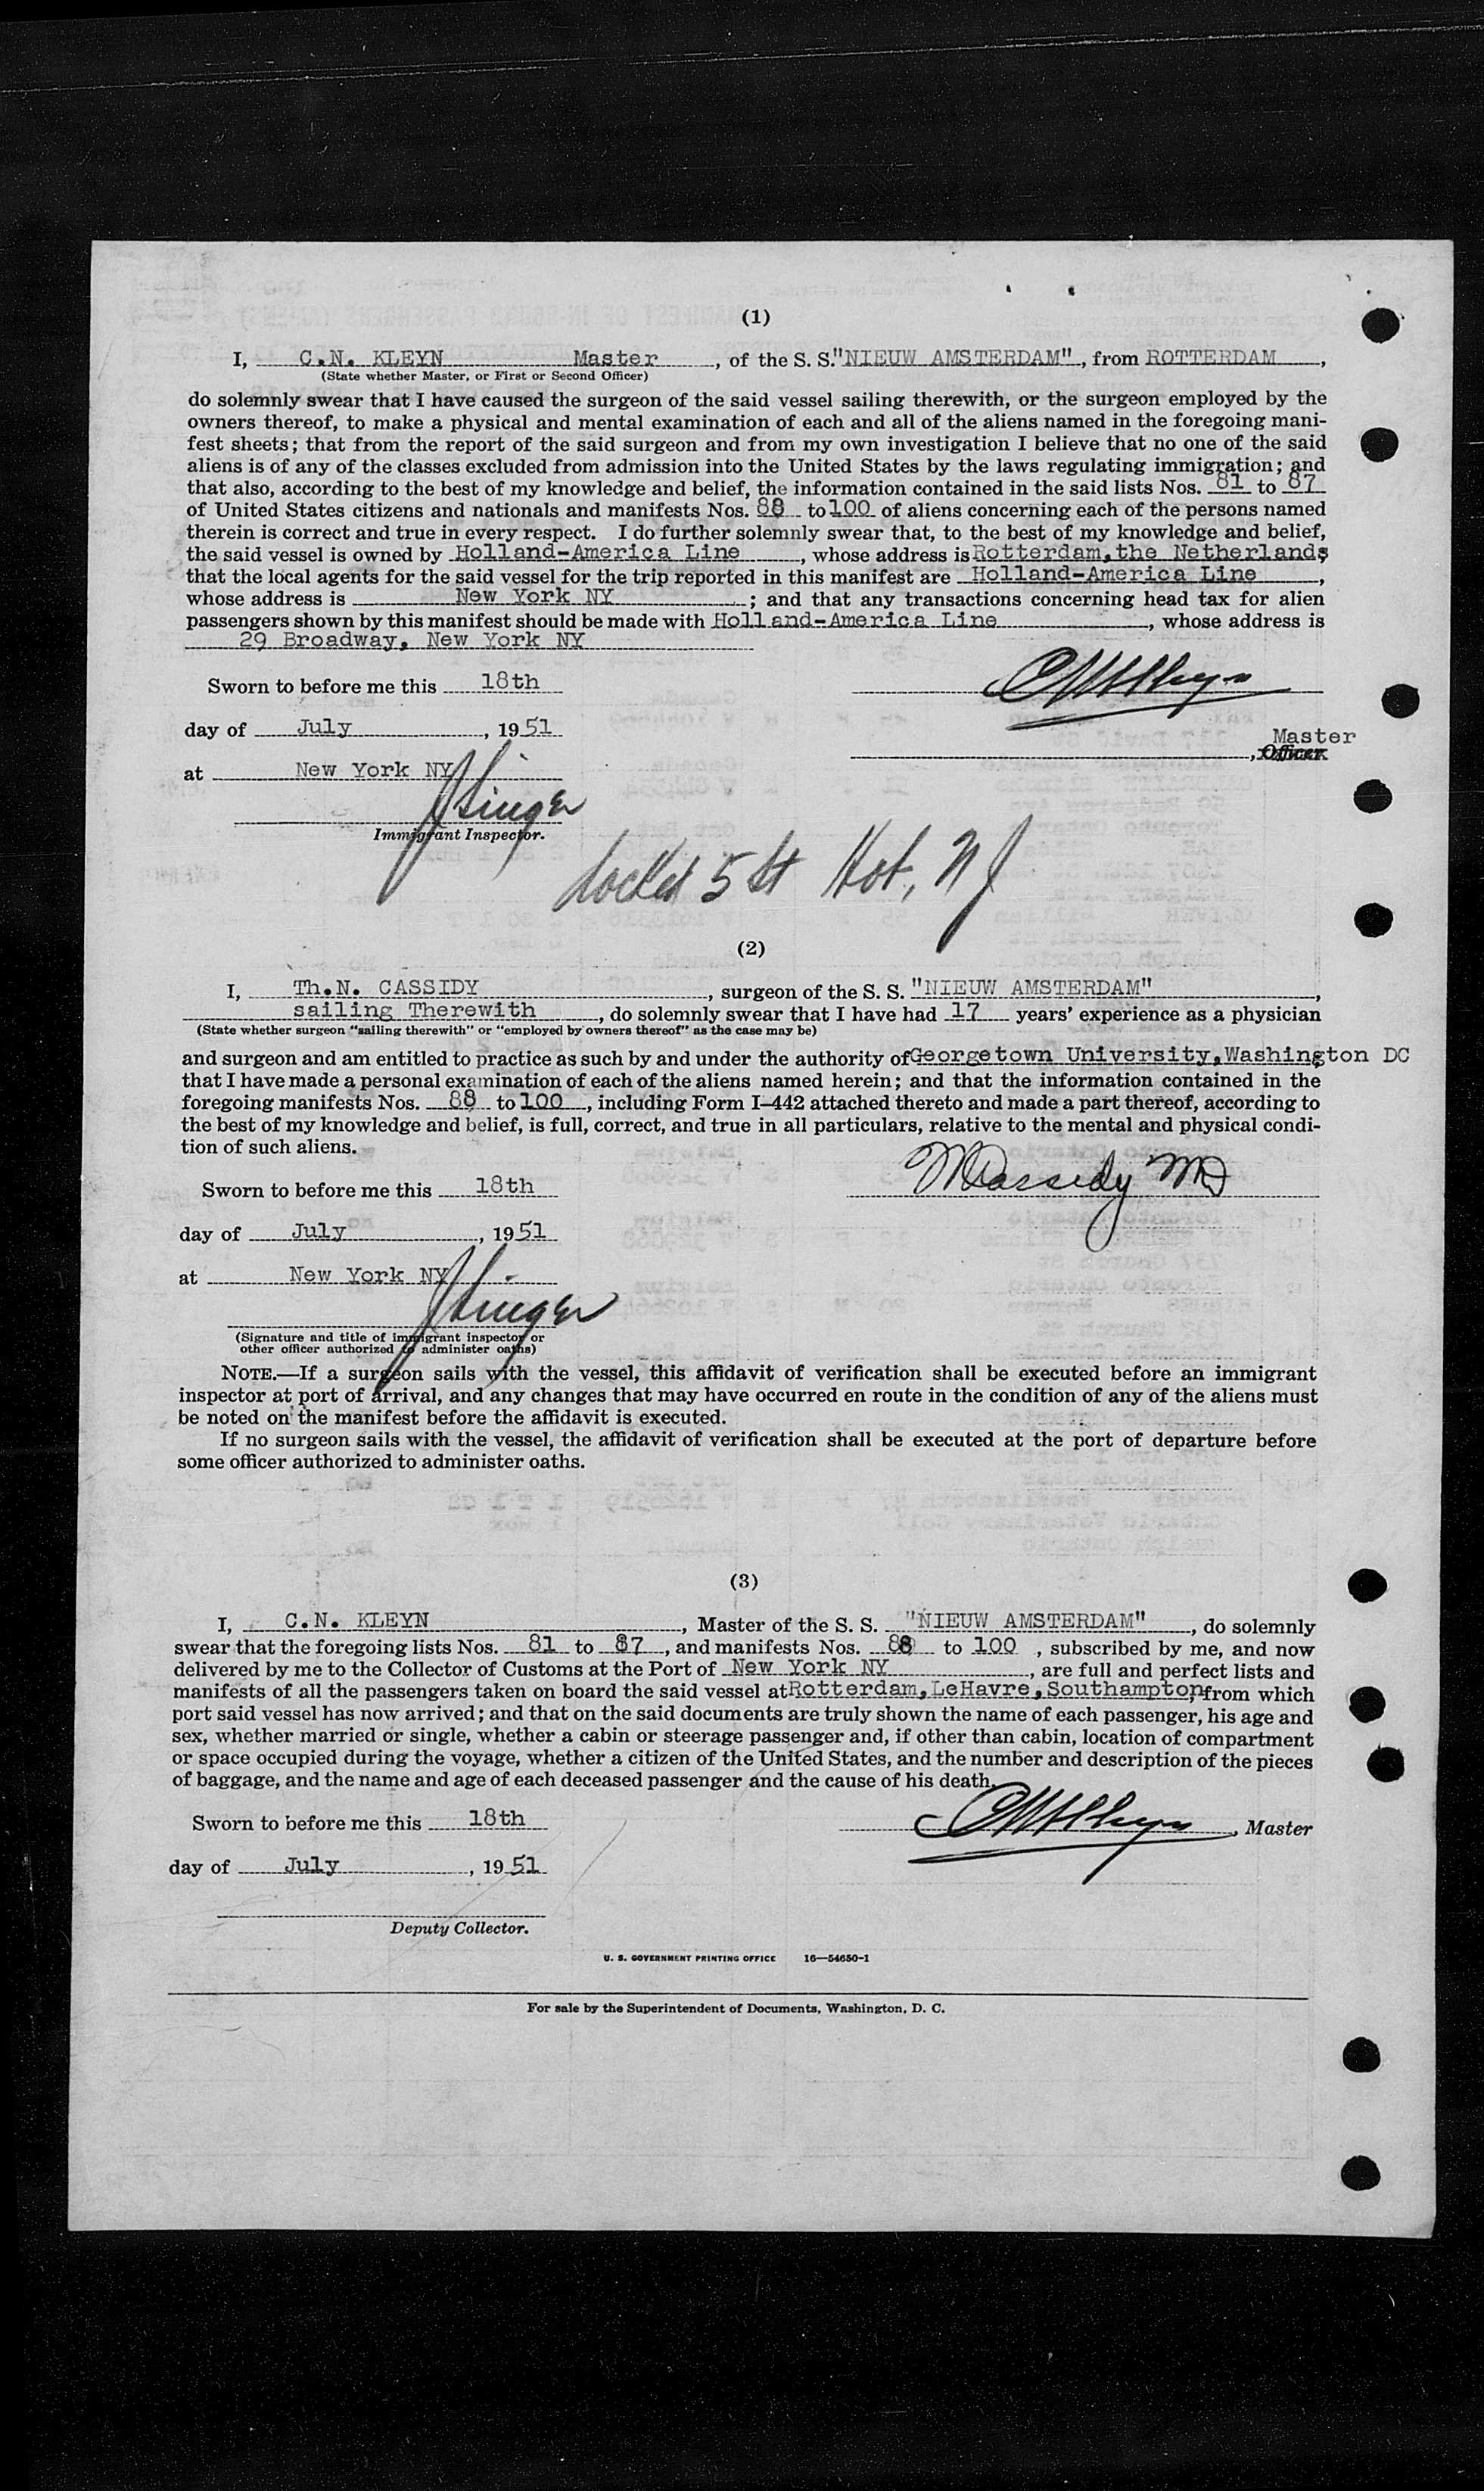 (1)
I, C.N. KLEYN Master, of the S. S. "NIEUW AMSTERDAM", from ROTTERDAM,
(State whether Master, or First or Second Officer)
do solemnly swear that I have caused the surgeon of the said vessel sailing therewith, or the surgeon employed by the
owners thereof, to make a physical and mental examination of each and all of the aliens named in the foregoing mani-
fest sheets; that from the report of the said surgeon and from my own investigation I believe that no one of the said
aliens is of any of the classes excluded from admission into the United States by the laws regulating immigration; and
that also, according to the best of my knowledge and belief, the information contained in the said lists Nos. 81 to 87
of United States citizens and nationals and manifests Nos. 88 to 100 of aliens concerning each of the persons named
therein is correct and true in every respect. I do further solemnly swear that, to the best of my knowledge and belief,
the said vessel is owned by Holland-America Line, whose address is Rotterdam, the Netherlands,
that the local agents for the said vessel for the trip reported in this manifest are Holland-America Line,
whose address is New York NY; and that any transactions concerning head tax for alien
passengers shown by this manifest should be made with Holland-America Line, whose address is
29 Broadway, New York NY
Sworn to before me this 18th
CNKleyn
day of July, 1951
Master
, Officer
at New York NY
J Singer
Immigrant Inspector.
Docked 5 St Hob, N J
(2)
I, Th.N. CASSIDY, surgeon of the S. S. "NIEUW AMSTERDAM",
sailing Therewith, do solemnly swear that I have had 17 years' experience as a physician
(State whether surgeon "sailing therewith" or "employed by owners thereof" as the case may be)
and surgeon and am entitled to practice as such by and under the authority of Georgetown University, Washington DC
that I have made a personal examination of each of the aliens named herein; and that the information contained in the
foregoing manifests Nos. 88 to 100, including Form I-442 attached thereto and made a part thereof, according to
the best of my knowledge and belief, is full, correct, and true in all particulars, relative to the mental and physical condi-
tion of such aliens.
Cassidy MD
Sworn to before me this 18th
day of July, 1951
at New York NY
J Singer
(Signature and title of immigrant inspector or
other officer authorized to administer oaths)
NOTE.—If a surgeon sails with the vessel, this affidavit of verification shall be executed before an immigrant
inspector at port of arrival, and any changes that may have occurred en route in the condition of any of the aliens must
be noted on the manifest before the affidavit is executed.
If no surgeon sails with the vessel, the affidavit of verification shall be executed at the port of departure before
some officer authorized to administer oaths.
(3)
I, C.N. KLEYN, Master of the S. S. "NIEUW AMSTERDAM", do solemnly
swear that the foregoing lists Nos. 81 to 87, and manifests Nos. 88 to 100, subscribed by me, and now
delivered by me to the Collector of Customs at the Port of New York NY, are full and perfect lists and
manifests of all the passengers taken on board the said vessel at Rotterdam, LeHavre, Southampton, from which
port said vessel has now arrived; and that on the said documents are truly shown the name of each passenger, his age and
sex, whether married or single, whether a cabin or steerage passenger and, if other than cabin, location of compartment
or space occupied during the voyage, whether a citizen of the United States, and the number and description of the pieces
of baggage, and the name and age of each deceased passenger and the cause of his death.
Sworn to before me this 18th
CNKleyn, Master
day of July, 1951
Deputy Collector.
U. S. GOVERNMENT PRINTING OFFICE 16—54650-1
For sale by the Superintendent of Documents, Washington, D. C.